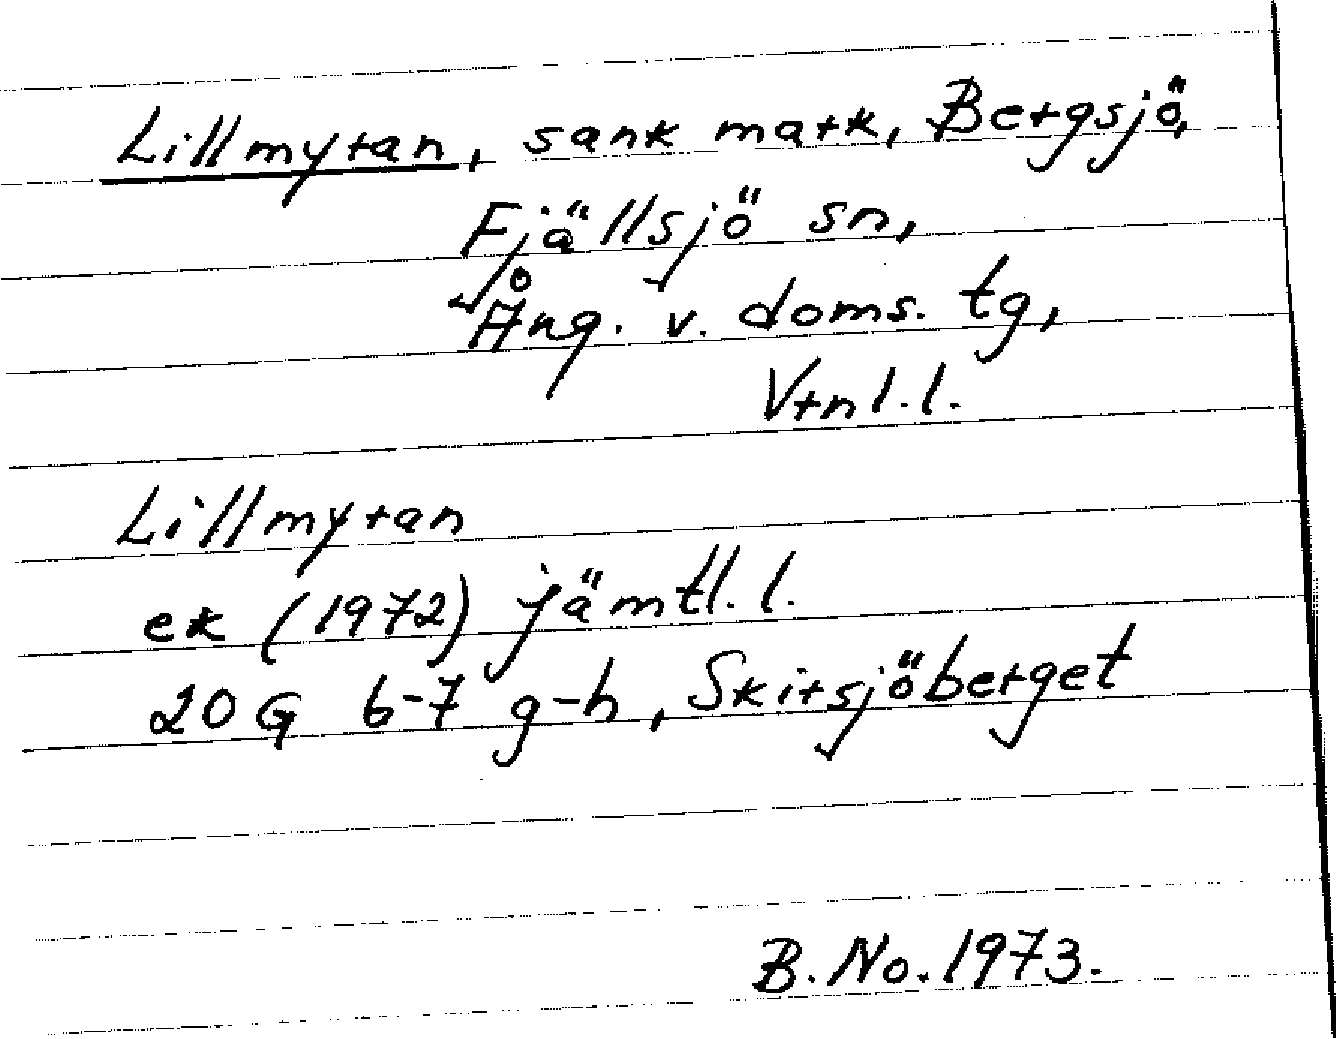 Lillmyran, sank mark, Bergsjö,
Fjällsjö sn,
Ång. v. doms. tg,
Vrnl. l.
Lillmyran
ek (1972) jämtl. l.
20 G 6-7 g-h, Skirsjöberget
B. No. 1973.